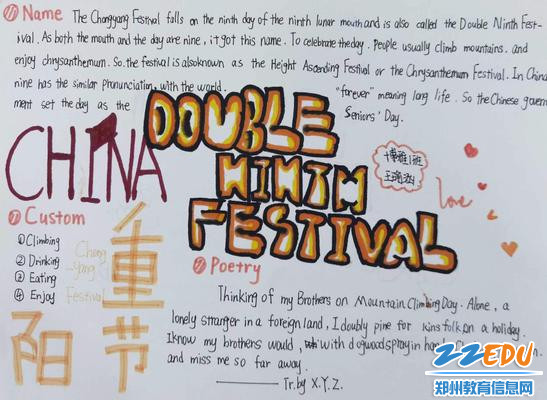 Name
The Chongyang Festival falls on the ninth day of the ninth lunar mouth and is also called the Double Ninth Fest-
ival. As both the mouth and the day are nine, it got this name. To celebrate the day. People usually climb mountains. and
enjoy chrysanthemum. So. the festival is also known as the Height Ascending Festival or the Chrysanthemum Festival. In China
nine has the similar pronunciation, with the world. "forever" meaning long life. So the Chinese govern
ment set the day as the Seniors' Day.
CHINA
DOUBLE
NINTH
FESTIVAL
1班
love
Custom
①Climbing
②Drinking
③Eating
④Enjoy
Chong
-yang
Festival
重
阳节
Poetry
Thinking of my Brothers on Mountain Climbing Day. Alone, a
lonely stranger in a foreign land, I doubly pine for kinsfolk on a holiday.
I know my brothers would, with dogwood spray in
and miss me so far away.
Tr. by X.Y.Z.
ZZEDU
郑州教育信息网